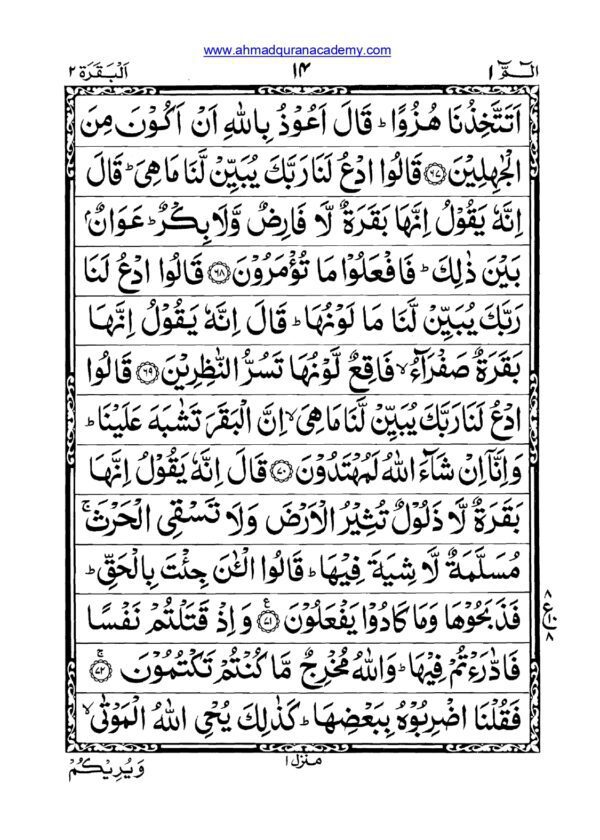 www.ahmadquranacademy.com
الٓمّٓ ١ ١٤ اَلْبَقَرَة ٢
اَتَتَّخِذُنَا هُزُوًا ؕ قَالَ اَعُوْذُ بِاللّٰهِ اَنْ اَكُوْنَ مِنَ
الْجٰهِلِيْنَ ﴿۶۷﴾ قَالُوا ادْعُ لَنَا رَبَّكَ يُبَيِّنْ لَّنَا مَا هِيَ ؕ قَالَ
اِنَّهٗ يَقُوْلُ اِنَّهَا بَقَرَةٌ لَّا فَارِضٌ وَّلَا بِكْرٌ ؕ عَوَانٌۢ
بَيْنَ ذٰلِكَ ؕ فَافْعَلُوْا مَا تُؤْمَرُوْنَ ﴿۶۸﴾ قَالُوا ادْعُ لَنَا
رَبَّكَ يُبَيِّنْ لَّنَا مَا لَوْنُهَا ؕ قَالَ اِنَّهٗ يَقُوْلُ اِنَّهَا
بَقَرَةٌ صَفْرَآءُ ۙ فَاقِعٌ لَّوْنُهَا تَسُرُّ النّٰظِرِيْنَ ﴿۶۹﴾ قَالُوا
ادْعُ لَنَا رَبَّكَ يُبَيِّنْ لَّنَا مَا هِيَ ۙ اِنَّ الْبَقَرَ تَشٰبَهَ عَلَيْنَا ؕ
وَاِنَّآ اِنْ شَآءَ اللّٰهُ لَمُهْتَدُوْنَ ﴿۷۰﴾ قَالَ اِنَّهٗ يَقُوْلُ اِنَّهَا
بَقَرَةٌ لَّا ذَلُوْلٌ تُثِيْرُ الْاَرْضَ وَلَا تَسْقِي الْحَرْثَ ۚ
مُسَلَّمَةٌ لَّا شِيَةَ فِيْهَا ؕ قَالُوا الْـٰٔنَ جِئْتَ بِالْحَقِّ ؕ
فَذَبَحُوْهَا وَمَا كَادُوْا يَفْعَلُوْنَ ﴿۷۱﴾ ع وَاِذْ قَتَلْتُمْ نَفْسًا
٨ ع ١٠ ٨
فَادّٰرَءْتُمْ فِيْهَا ؕ وَاللّٰهُ مُخْرِجٌ مَّا كُنْتُمْ تَكْتُمُوْنَ ﴿۷۲﴾ ۚ
فَقُلْنَا اضْرِبُوْهُ بِبَعْضِهَا ؕ كَذٰلِكَ يُحْيِ اللّٰهُ الْمَوْتٰى ۙ
منزل ١
وَيُرِيْكُمْ